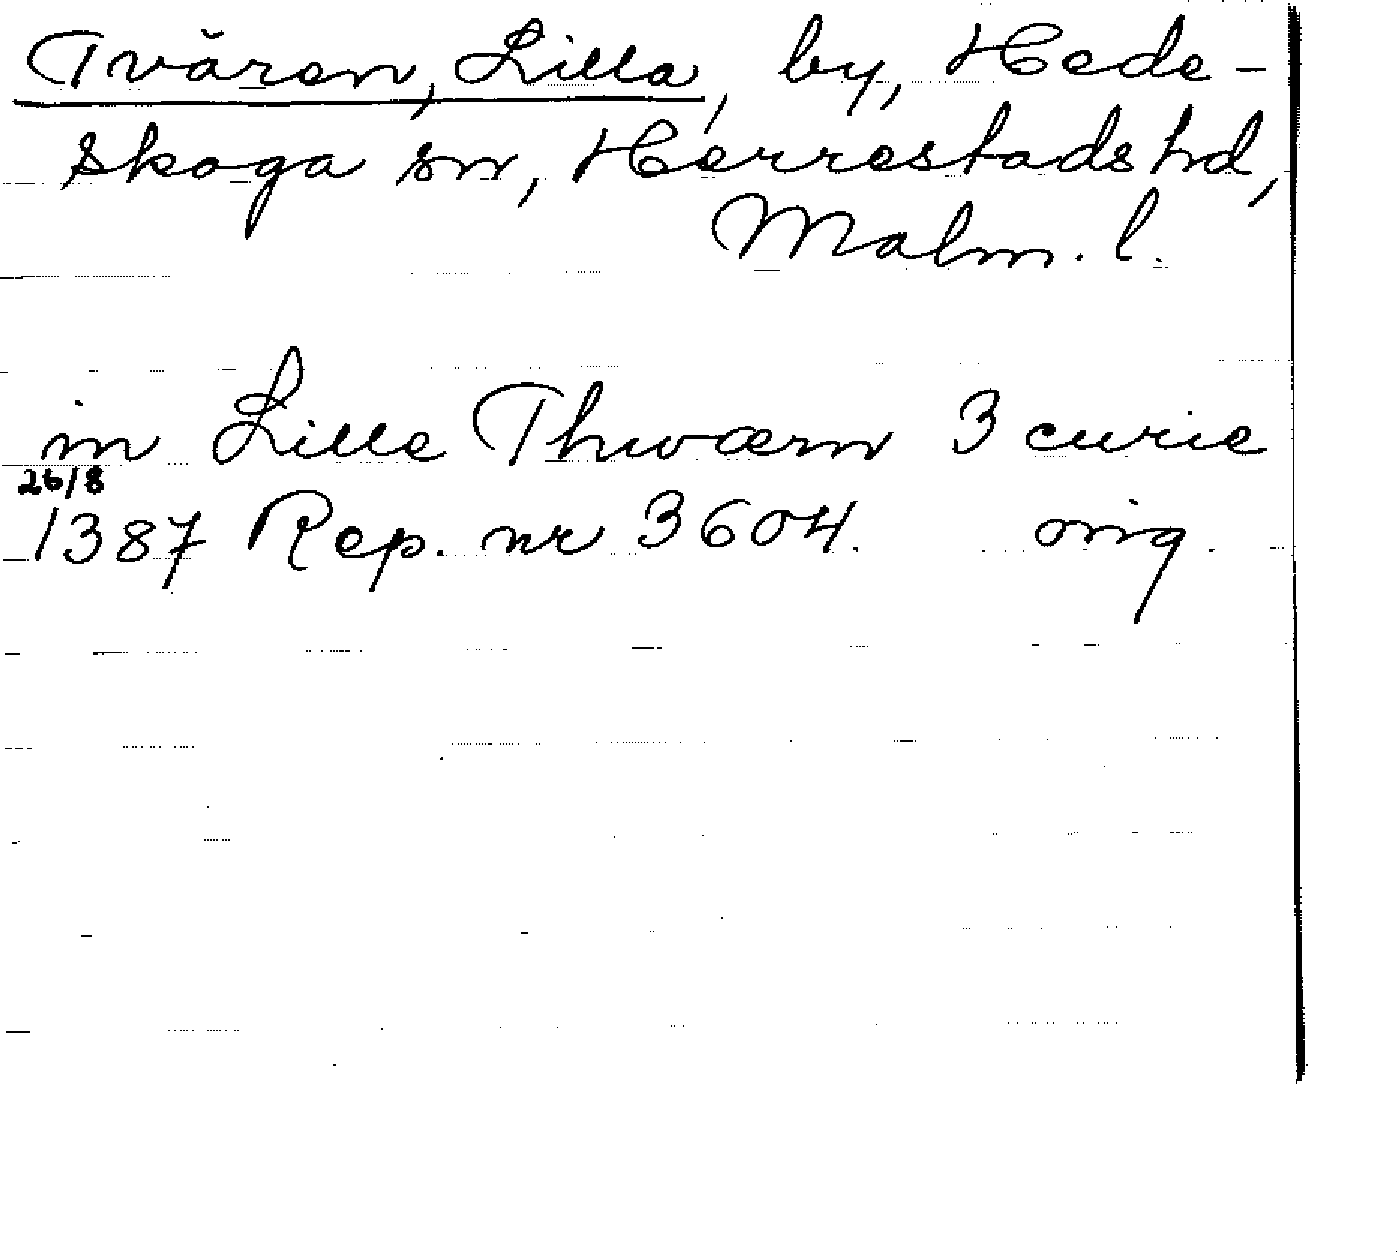 Tvären, Lilla, by, Hede-
skoga sn, Herrestads hd,
Malm. l.
in Lille Thwærn 3 curie
26/8
1387 Rep. nr 3604. orig.